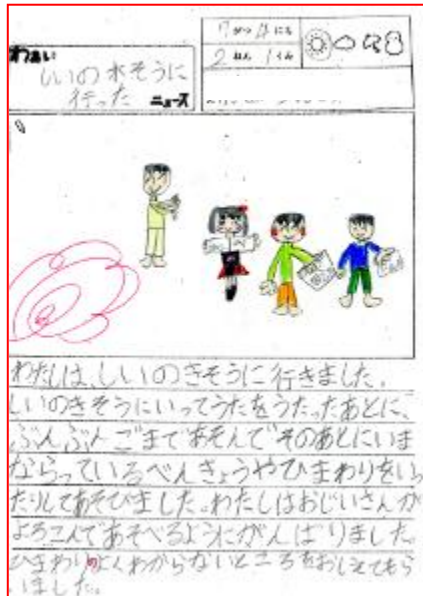 7がつ4にち
2ねん1くみ
わあい
しいの木そうに
行った ニュース
わたしは、しいのきそうに行きました。
しいのきそうにいってうたをうたったあとに、
ぶんぶんごまであそんでそのあとにいま
ならっているべんきょうやひまわりをいっ
たりしてあそびました。わたしはおじいさんが
よろこんであそべるようにがんばりました。
ひまわりのよくわからないところをおしえてもら
いました。